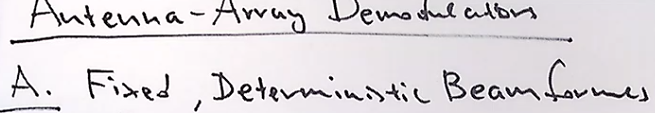 Antenna-Array Demodulators
A. Fixed, Deterministic Beamformers